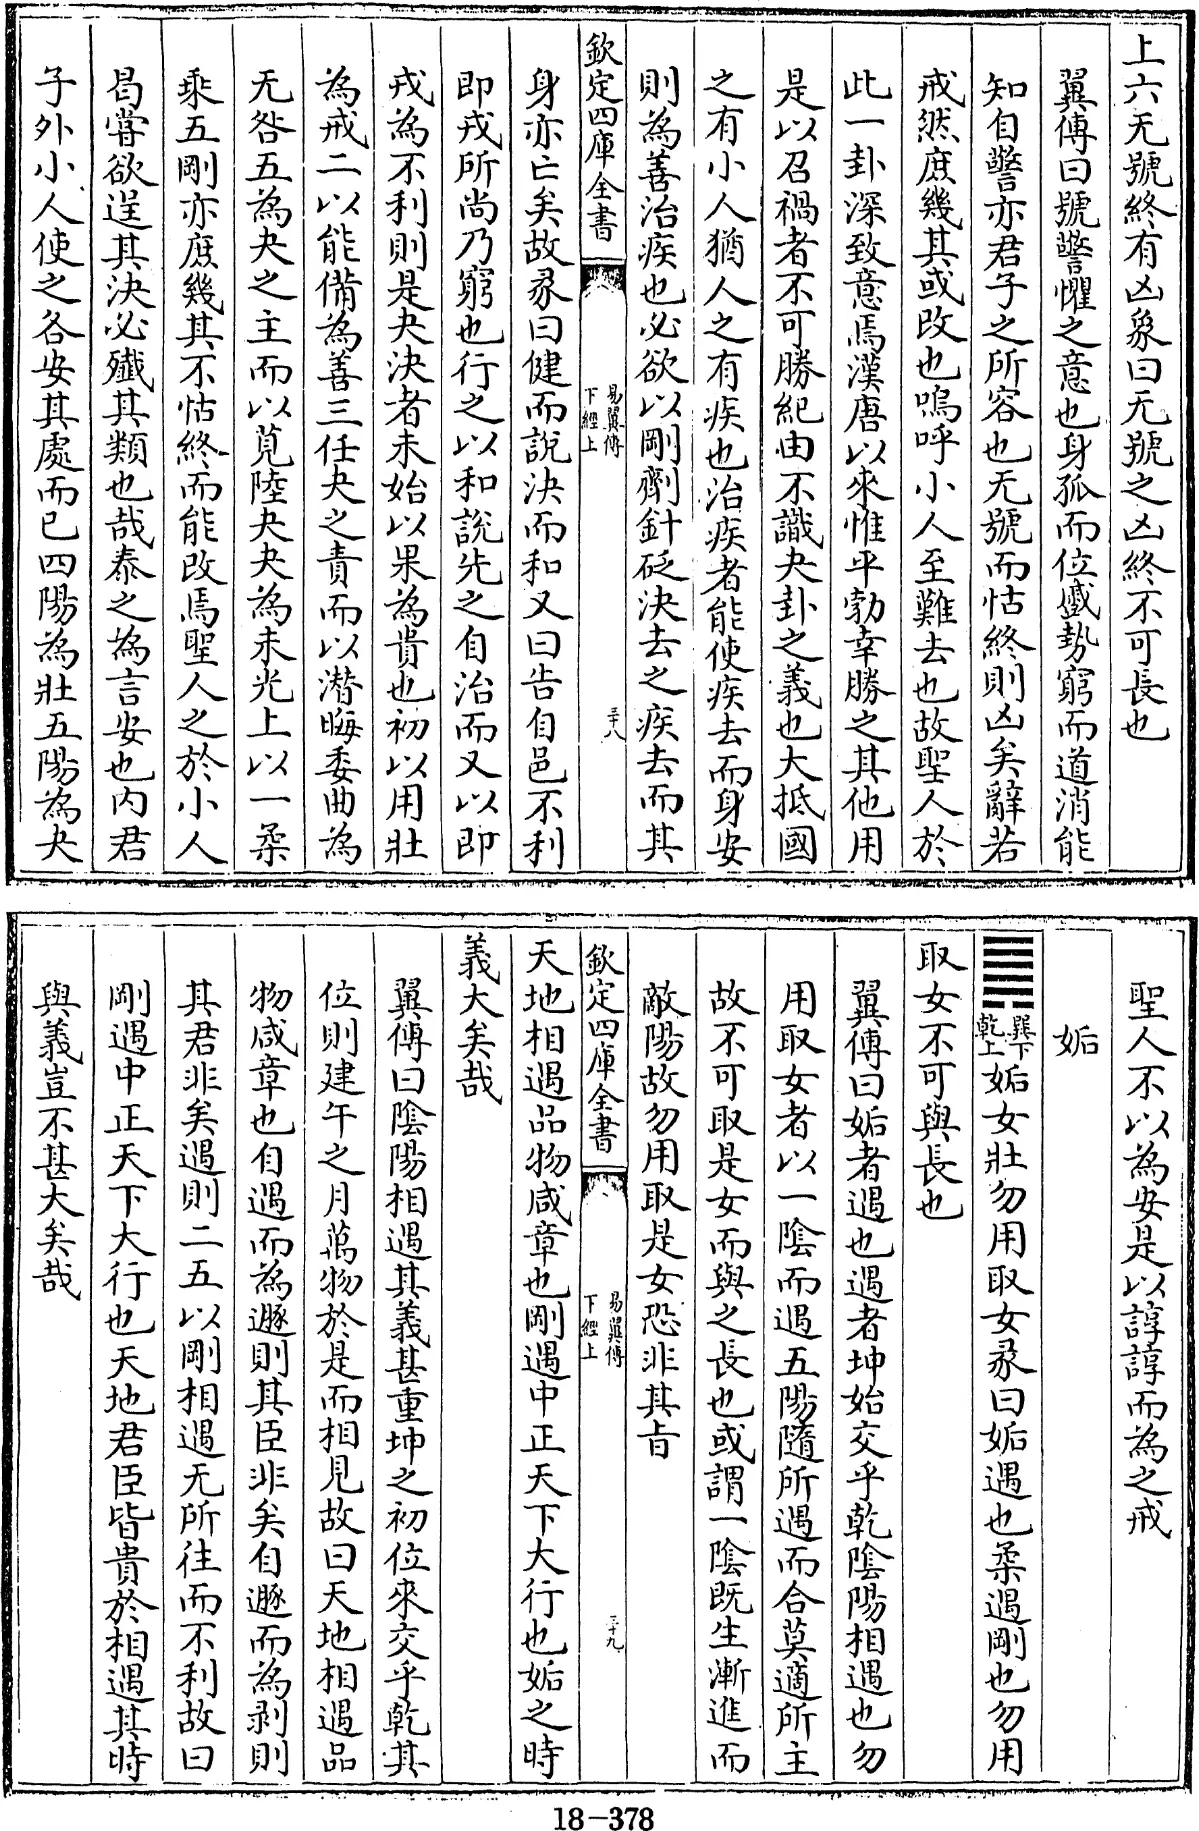 上六无號終有凶象曰无號之凶終不可長也
翼傳曰號警懼之意也身孤而位孅勢窮而道消能
知自警亦君子之所容也无號而怙終則凶矣辭若
戒然庶幾其或改也嗚呼小人至難去也故聖人於
此一卦深致意焉漢唐以來惟平勃幸勝之其他用
是以召禍者不可勝紀由不識夬卦之義也大抵國
之有小人猶人之有疾也治疾者能使疾去而身安
則為善治疾也必欲以剛劑針砭決去之疾去而其
欽定四庫全書
易翼傳
下經上
三十八
身亦亡矣故彖曰健而說決而和又曰告自邑不利
即戎所尚乃窮也行之以和說先之自治而又以即
戎為不利則是夬決者未始以果為貴也初以用壯
為戒二以能備為善三任夬之責而以潛晦委曲為
无咎五為夬之主而以莧陸夬夬為未光上以一柔
乘五剛亦庶幾其不怙終而能改焉聖人之於小人
曷嘗欲逞其決必殲其類也哉泰之為言安也內君
子外小人使之各安其處而已四陽為壯五陽為夬
聖人不以為安是以諄諄而為之戒
姤
䷫
巽下
乾上
姤女壯勿用取女彖曰姤遇也柔遇剛也勿用
取女不可與長也
翼傳曰姤者遇也遇者坤始交乎乾陰陽相遇也勿
用取女者以一陰而遇五陽隨所遇而合莫適所主
故不可取是女而與之長也或謂一陰既生漸進而
敵陽故勿用取是女恐非其旨
欽定四庫全書
易翼傳
下經上
三十九
天地相遇品物咸章也剛遇中正天下大行也姤之時
義大矣哉
翼傳曰陰陽相遇其義甚重坤之初位來交乎乾其
位則建午之月萬物於是而相見故曰天地相遇品
物咸章也自遇而為遯則其臣非矣自遯而為剥則
其君非矣遇則二五以剛相遇无所往而不利故曰
剛遇中正天下大行也天地君臣皆貴於相遇其時
與義豈不甚大矣哉
18-378